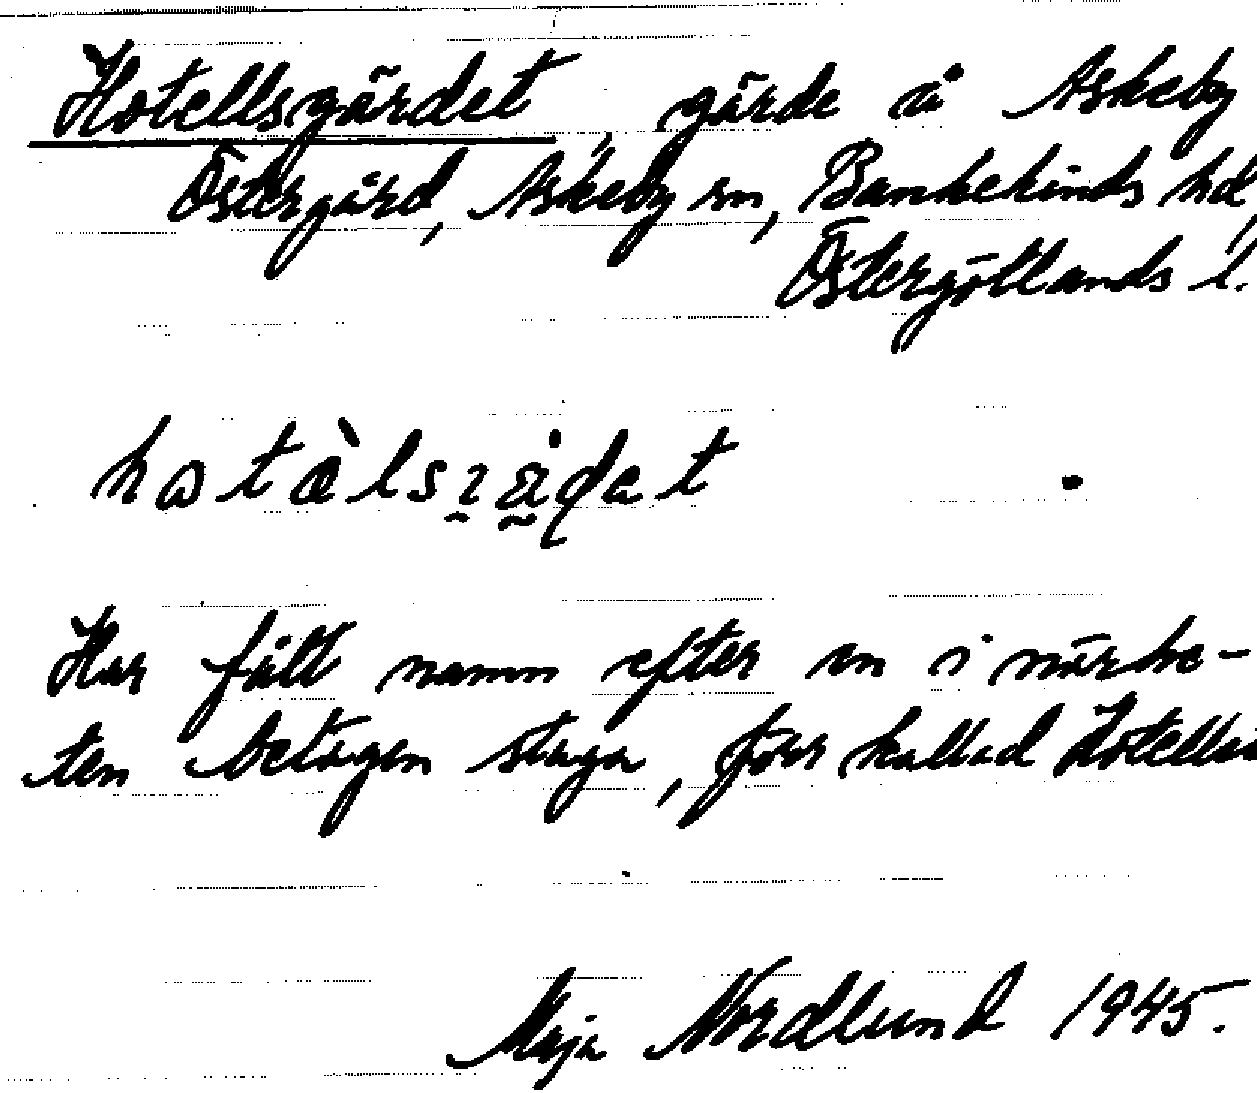 Hotellsgärdet, gärde å Askeby
Östergård, Askeby sn, Bankekinds hd,
Östergötlands l.
Har fått namn efter en i närhe-
ten belägen stuga, förr kallad Hotellet
Maja Nordlund 1945.